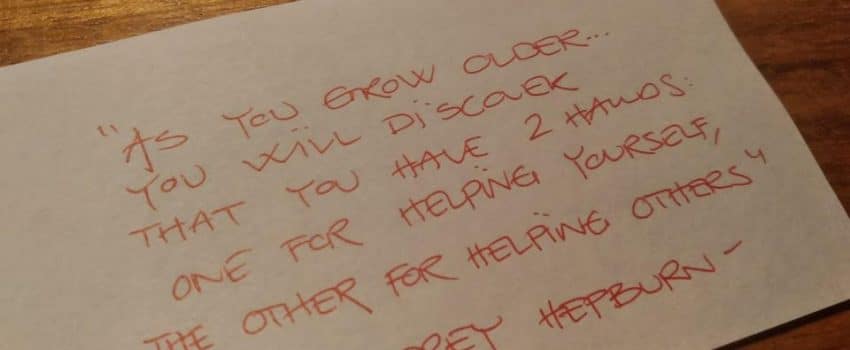 "AS YOU GROW OLDER...
YOU WILL DISCOVER
THAT YOU HAVE 2 HANDS:
ONE FOR HELPING YOURSELF,
THE OTHER FOR HELPING OTHERS"
HEPBURN -